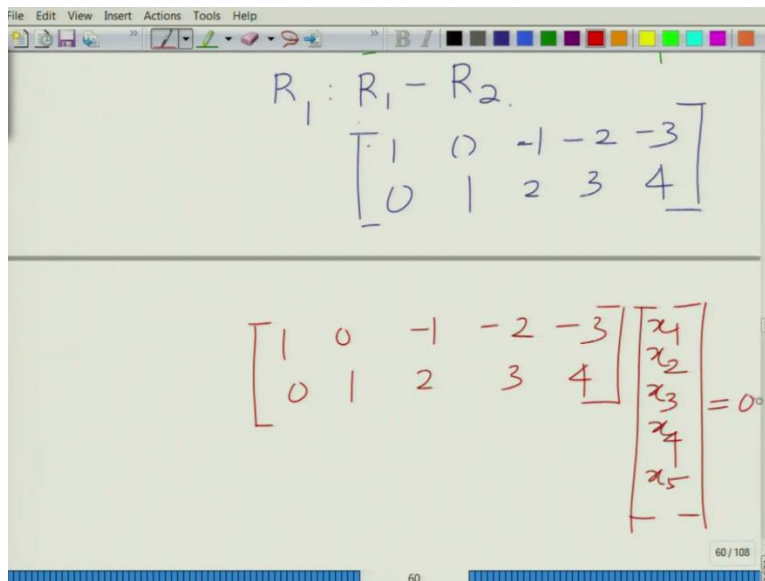 File Edit View Insert Actions Tools Help
R1 : R1 - R2.
1 0 -1 -2 -3
0 1 2 3 4
1 0 -1 -2 -3 x1
0 1 2 3 4 x2
x3 = 0
x4
x5
60 / 108
60